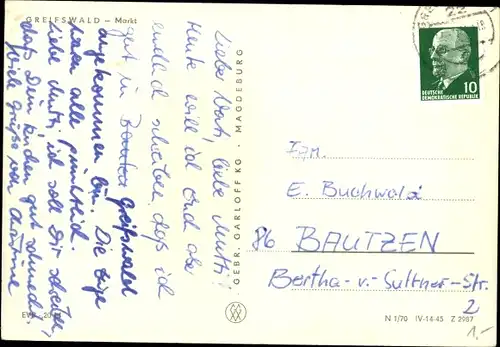 GREIFSWALD — Markt
Liebe Vati, liebe Mutti!
Heute will ich Euch
endlich schreiben, daß ich
gut in Greifswald
angekommen bin. Die Züge
waren alle pünktlich.
Liebe Mutti, ich soll Dir schreiben,
daß Dein Kuchen gut schmeckt.
Viele Grüße von Christine
GEBR. GARLOFF KG · MAGDEBURG
EVP
N 1/70 IV-14-45 Z 2987
22
DEUTSCHE
DEMOKRATISCHE REPUBLIK
10
Fam.
E. Buchwald
86 BAUTZEN
Bertha-v.-Suttner-Str.
2
1,-